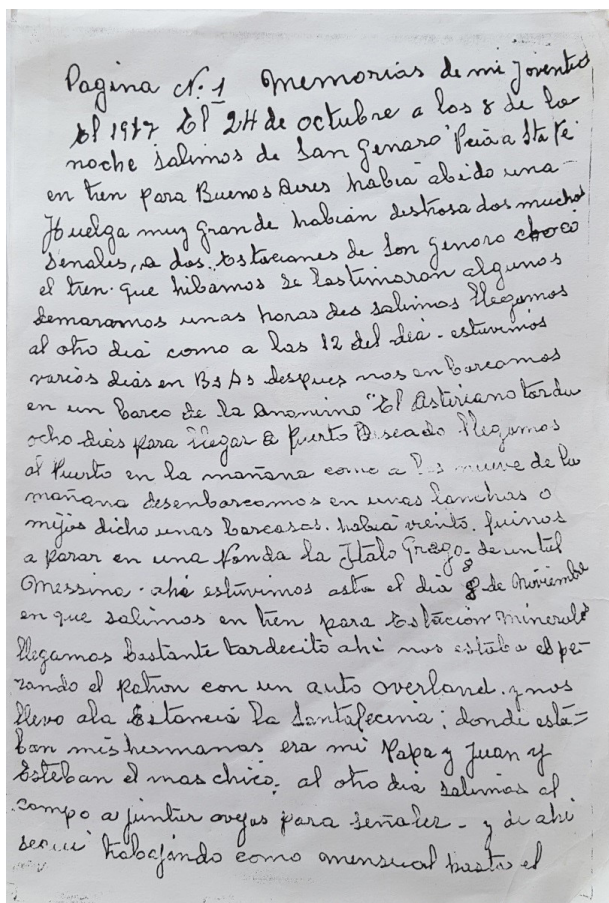 Pagina Nº 1 Memorias de mi joventud
El 1917 El 24 de octubre a los 8 de la
noche salimos de San Genaro Pcia a Sta Fe
en tren para Buenos Aires habia abido una
Huelga muy grande habian destrosa dos muchos
señales, a dos Estaciones de San genaro choco
el tren que hibamos se lastimaron algunos
demaramos unas horas des salimos llegamos
al otro dia como a las 12 del dia - estuvimos
varios dias en Bs As despues nos enbarcamos
en un barco de la Anonimo "El Asturiano tardu
ocho dias para llegar a Puerto Deseado llegamos
al Puerto en la mañana como a las nueve de la
mañana desenbarcamos en unas lanchas o
mijor dicho unas barcasas. habia viento. fuinos
a parar en una Fonda la Italo Grego - de un tal
Messina - ahi estuvimos asta el dia 8 de Noviembre
en que salimos en tren para Estacion Minerales
llegamos bastante tardecito ahi nos estaba espe-
rando el patron con un auto overland. y nos
llevo ala Estancia la Santafecina; donde esta=
ban mis hermanas era mi Papa y Juan y
Esteban el mas chico; al otro dia salimos al
campo a juntar ovejas para señalar - y de ahi
segui trabajando como mensual hasta el